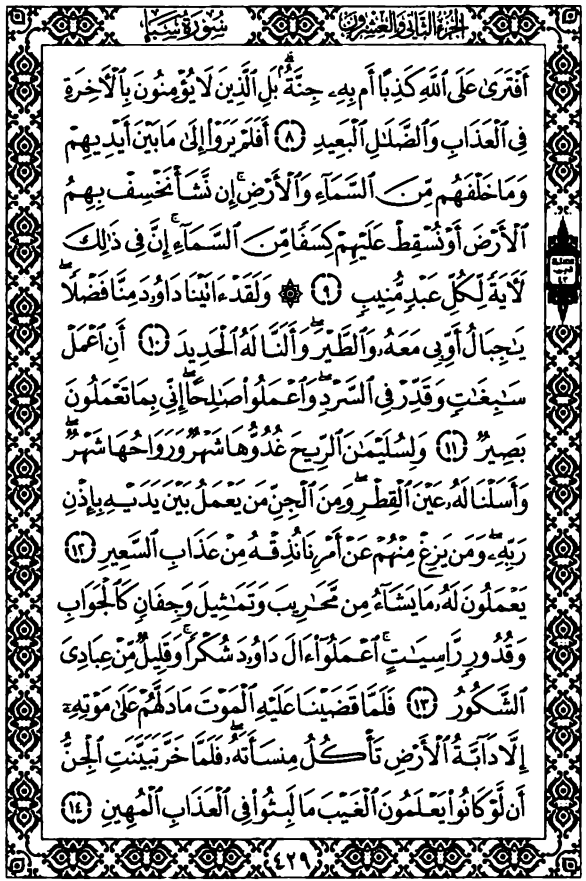 الجزء الثاني والعشرون
سورة سبإ
أَفْتَرَىٰ عَلَى اللَّهِ كَذِبًا أَم بِهِۦ جِنَّةٌۢ ۗ بَلِ الَّذِينَ لَا يُؤْمِنُونَ بِالْآخِرَةِ
فِي الْعَذَابِ وَالضَّلَٰلِ الْبَعِيدِ ﴿٨﴾ أَفَلَمْ يَرَوْا۟ إِلَىٰ مَا بَيْنَ أَيْدِيهِمْ
وَمَا خَلْفَهُم مِّنَ السَّمَآءِ وَالْأَرْضِ ۚ إِن نَّشَأْ نَخْسِفْ بِهِمُ
الْأَرْضَ أَوْ نُسْقِطْ عَلَيْهِمْ كِسَفًا مِّنَ السَّمَآءِ ۚ إِنَّ فِي ذَٰلِكَ
لَآيَةً لِّكُلِّ عَبْدٍ مُّنِيبٍ ﴿٩﴾ ۞ وَلَقَدْ ءَاتَيْنَا دَاوُۥدَ مِنَّا فَضْلًا ۖ
يَٰجِبَالُ أَوِّبِي مَعَهُۥ وَالطَّيْرَ ۖ وَأَلَنَّا لَهُ الْحَدِيدَ ﴿١٠﴾ أَنِ اعْمَلْ
سَٰبِغَٰتٍ وَقَدِّرْ فِي السَّرْدِ ۖ وَاعْمَلُوا۟ صَٰلِحًا ۖ إِنِّي بِمَا تَعْمَلُونَ
بَصِيرٌ ﴿١١﴾ وَلِسُلَيْمَٰنَ الرِّيحَ غُدُوُّهَا شَهْرٌ وَرَوَاحُهَا شَهْرٌ ۖ
وَأَسَلْنَا لَهُۥ عَيْنَ الْقِطْرِ ۖ وَمِنَ الْجِنِّ مَن يَعْمَلُ بَيْنَ يَدَيْهِ بِإِذْنِ
رَبِّهِۦ ۖ وَمَن يَزِغْ مِنْهُمْ عَنْ أَمْرِنَا نُذِقْهُ مِنْ عَذَابِ السَّعِيرِ ﴿١٢﴾
يَعْمَلُونَ لَهُۥ مَا يَشَآءُ مِن مَّحَٰرِيبَ وَتَمَٰثِيلَ وَجِفَانٍ كَالْجَوَابِ
وَقُدُورٍ رَّاسِيَٰتٍ ۚ اعْمَلُوٓا۟ ءَالَ دَاوُۥدَ شُكْرًا ۚ وَقَلِيلٌ مِّنْ عِبَادِيَ
الشَّكُورُ ﴿١٣﴾ فَلَمَّا قَضَيْنَا عَلَيْهِ الْمَوْتَ مَا دَلَّهُمْ عَلَىٰ مَوْتِهِۦٓ
إِلَّا دَآبَّةُ الْأَرْضِ تَأْكُلُ مِنسَأَتَهُۥ ۖ فَلَمَّا خَرَّ تَبَيَّنَتِ الْجِنُّ
أَن لَّوْ كَانُوا۟ يَعْلَمُونَ الْغَيْبَ مَا لَبِثُوا۟ فِي الْعَذَابِ الْمُهِينِ ﴿١٤﴾
٤٢٩